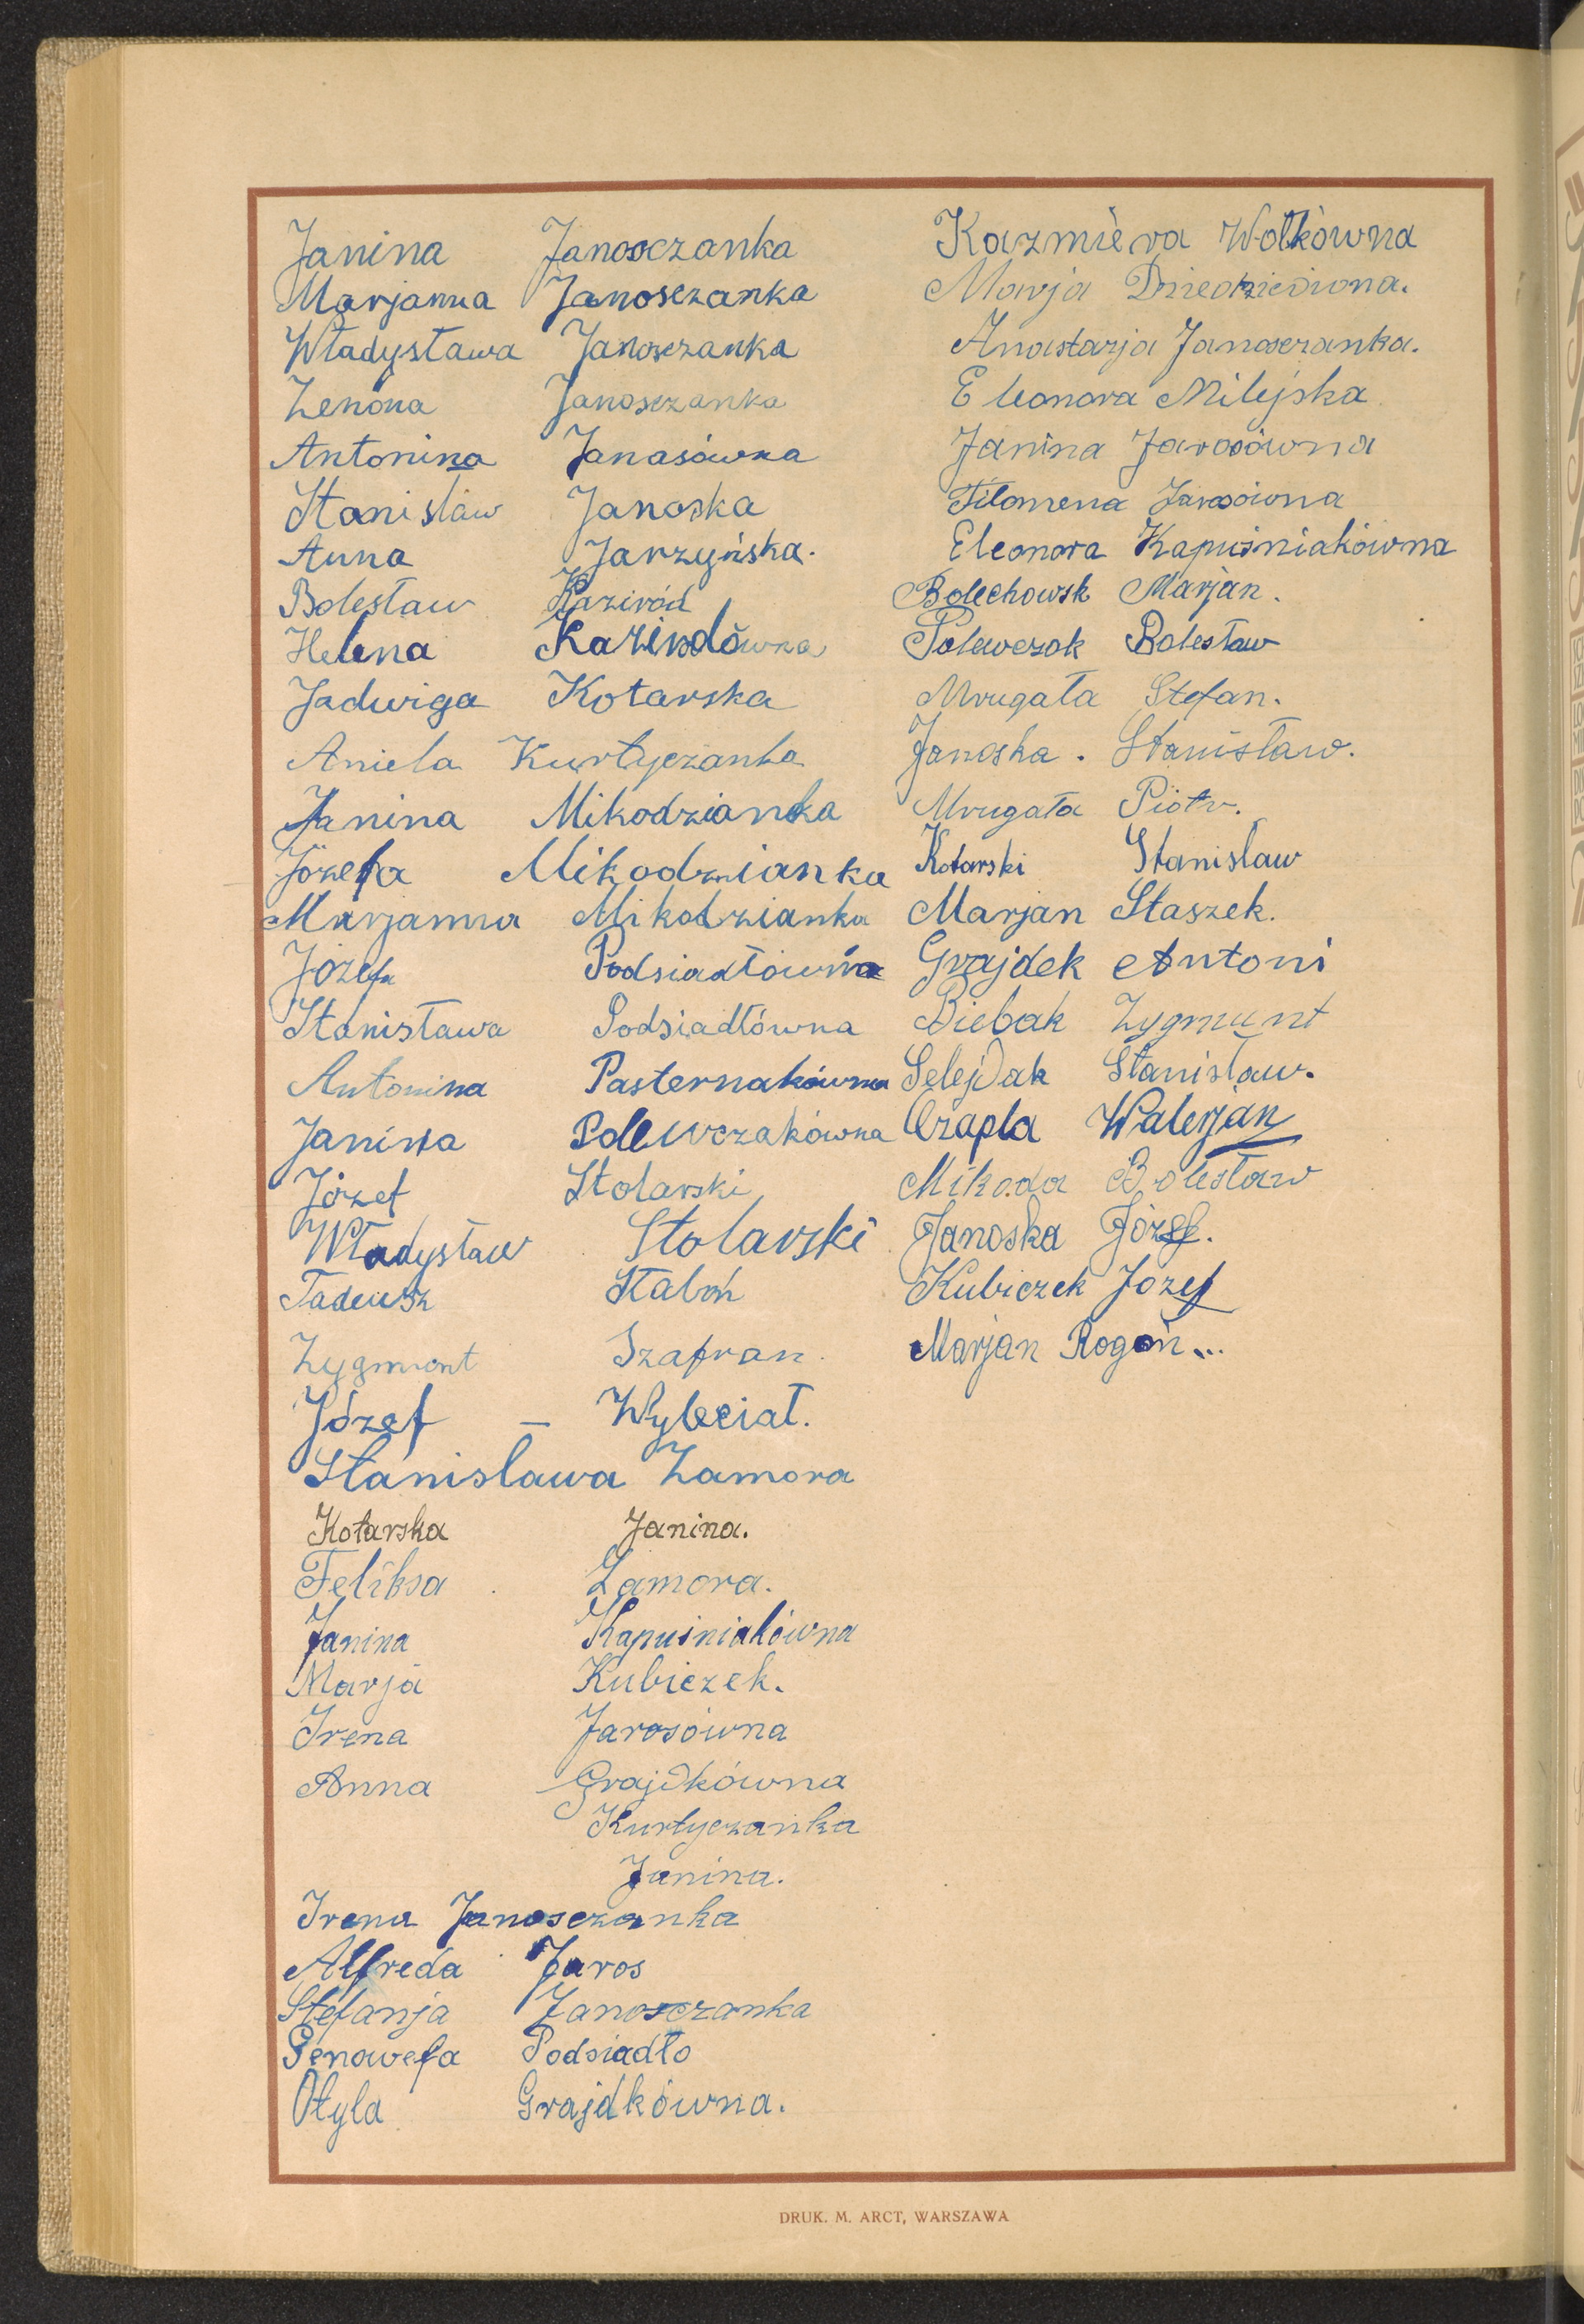 Janina Janosczanka
Marjanna Janosczanka
Władysława Janosczanka
Zenona Janosczanka
Antonina Janasówna
Stanisław Janoska
Anna Jarzyńska.
Bolesław Kaziród
Helena Kaziródówna
Jadwiga Kotarska
Aniela Kurtyczanka
Janina Mikodzianka
Józefa Mikodzianka
Marjanna Mikodzianka
Józefa Podsiadłówna
Stanisława Podsiadłówna
Antonina Pasternakówna
Janina Polewczakówna
Józef Stolarski
Władysław Stolarski
Tadeusz Staboń
Zygmont Szafran.
Józef — Wyleciał.
Stanisława Zamora
Kotarska Janina.
Feliksa Zamora.
Janina Kapuśniakówna
Marja Kubiczek.
Irena Jarosówna
Anna Grajdkówna
Kurtyczanka
Janina.
Irena Janosczanka
Alfreda Jaros
Stefanja Janosczanka
Genowefa Podsiadło
Otyla Grajdkówna.
Kazmiera Wołkówna
Marja Dziedzicówna.
Anastazja Janosczanka.
Eleonora Milejska
Janina Jarosówna
Filomena Jarosówna
Eleonora Kapuśniakówna
Bolechowsk Marjan.
Polewczak Bolesław
Mrugała Stefan.
Janoska. Stanisław.
Mrugała Piotr.
Kotarski Stanisław
Marjan Staszek.
Grajdek Antoni
Biebak Zygmunt
Selejdak Stanisław.
Czapla Walerjan
Mikoda Bolesław
Janoska Józef.
Kubiczek Józef
Marjan Rogoń...
DRUK. M. ARCT, WARSZAWA